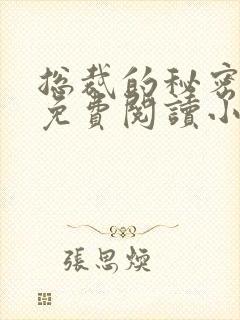 總裁的秘密
免費閱讀小
張思煥